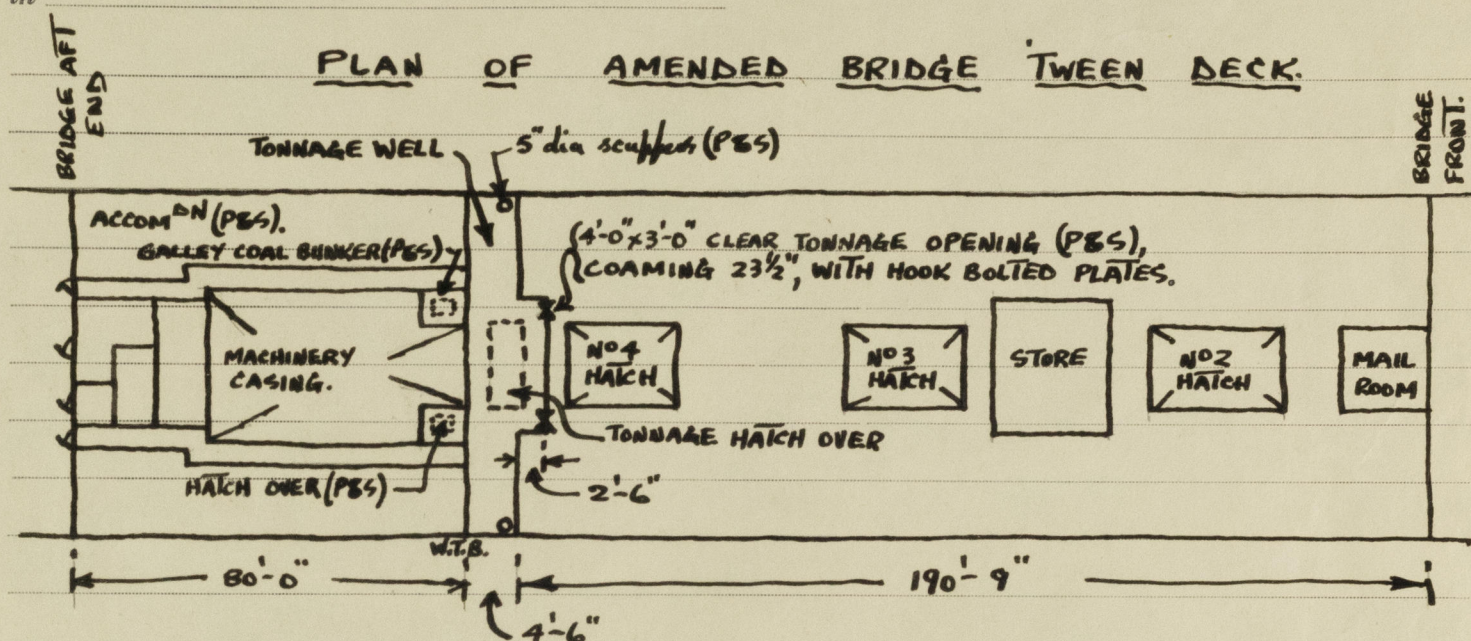 PLAN OF AMENDED BRIDGE 'TWEEN DECK.
BRIDGE AFT
END
BRIDGE
FRONT.
TONNAGE WELL
5" dia scuppers (P&S)
ACCOMDN (P&S).
GALLEY COAL BUNKER (P&S)
4'-0" x 3'-0" CLEAR TONNAGE OPENING (P&S),
COAMING 23½", WITH HOOK BOLTED PLATES.
MACHINERY
CASING.
No 4
HATCH
No 3
HATCH
STORE
No 2
HATCH
MAIL
ROOM
TONNAGE HATCH OVER
HATCH OVER (P&S)
2'-6"
W.T.B.
80'-0"
190'-9"
4'-6"